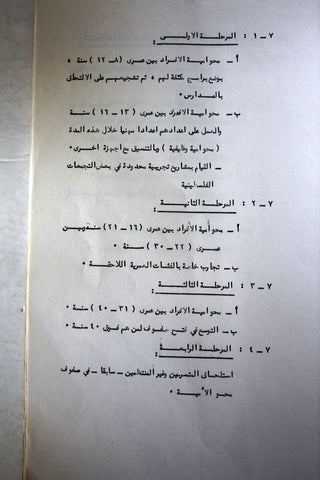 ٧ – ١ : المرحلة الأولى :
أ – محو أمية الأفراد بين عمرى ( ٨ – ١٢ ) سنة ،
بوضع برامج مكثفة لهم ، ثم تشجيعهم على الالتحاق
بالمدارس ٠
ب – محو أمية الأفراد بين عمرى ( ١٣ – ١٦ ) سنة
والعمل على اعدادهم اعدادا مهنيا خلال هذه المدة
( محو أمية وظيفية ) بالتنسيق مع أجهزة أخرى ٠
– القيام بمشاريع تجريبية محدودة في بعض التجمعات
الفلسطينية
٧ – ٢ : المرحلة الثانية :
أ – محو أمية الأفراد بين عمرى ( ١٦ – ٢١ ) سنة وبين
عمرى ( ٢٢ – ٣٠ ) سنة ٠
ب – تجارب خاصة بالفئات العمرية اللاحقة ٠
٧ – ٣ : المرحلة الثالثة :
أ – محو أمية الأفراد بين عمرى ( ٣١ – ٤٠ ) سنة ٠
ب – التوسع في فتح صفوف لمن هم فوق ٤٠ سنة ٠
٧ – ٤ : المرحلة الرابعة :
استلحاق المتسربين وغير المنتظمين – سابقا – في صفوف
محو الأمية ٠